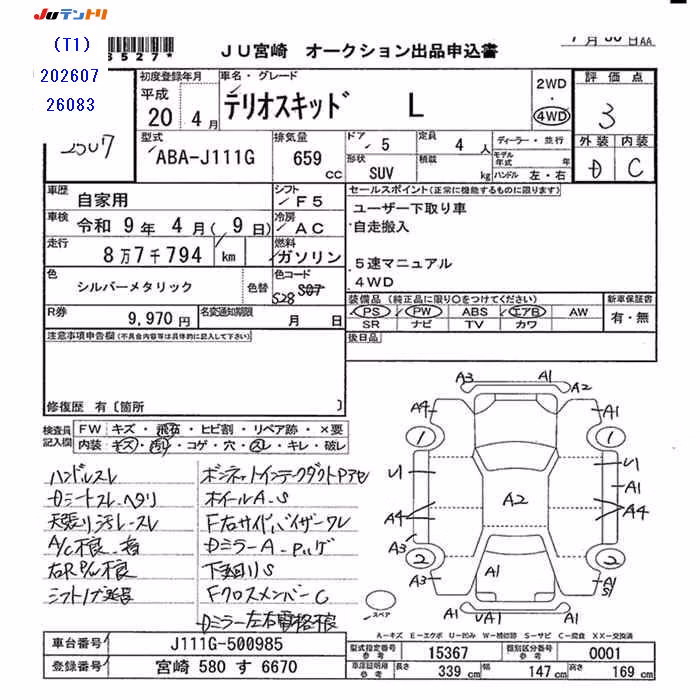 JUテントリ
(T1)
202607
26083
8527*
JU宮崎 オークション出品申込書
7月30日AA
初度登録年月
平成
20 4月
車名・グレード
テリオスキッド L
2WD
・
4WD
評価点
3
外装 内装
D C
2507
型式
ABA-J111G
排気量
659 cc
ドア
5
定員
4 人
形状
SUV
積載
kg
ディーラー・並行
モデル年式 年
ハンドル 左・右
車歴
自家用
シフト
F5
車検
令和 9年 4月( 9日)
冷房
AC
走行
8万7千794 km
燃料
ガソリン
色
シルバーメタリック
色替
色コード
S28 S07
R券
9,970円
名変通知期限
月 日
セールスポイント(正常に機能するものに限ります)
ユーザー下取り車
自走搬入
5速マニュアル
4WD
装備品(純正品に限り○をつけてください)
PS PW ABS エアB AW
SR ナビ TV カワ
新車保証書
有・無
後日品
注意事項申告欄(不具合内容等は具体的に記入して下さい)
修復歴 有〔箇所 〕
検査員記入欄
FW キズ・飛石・ヒビ割・リペア跡・×要
内装 キズ・汚レ・コゲ・穴・スレ・キレ・破レ
ハンドルスレ
Dシートスレ、ヘタリ
天張り汚レ・スレ
A/C不良、音
右RP/W不良
シフトノブ延長
ボンネットインテークダクトPアセ
ホイールA、S
F右サイドバイザーワレ
DミラーA、Pハゲ
下廻りS
FクロスメンバーC
Dミラー左右電格不良
A3 A1 A2
A4 A1
1 1
U1 U1
A1
A2
A4 A4
A3
2 2
A1
A3 A1 S
A1 UA1 A1
スペア
A-キズ E-エクボ U-凹み W-補修跡 S-サビ C-腐食 XX-交換済
車台番号 J111G-500985
登録番号 宮崎 580 す 6670
型式指定番号 参考 15367 類別区分番号 参考 0001
車庫証明用 参考 長さ 339 cm 幅 147 cm 高さ 169 cm